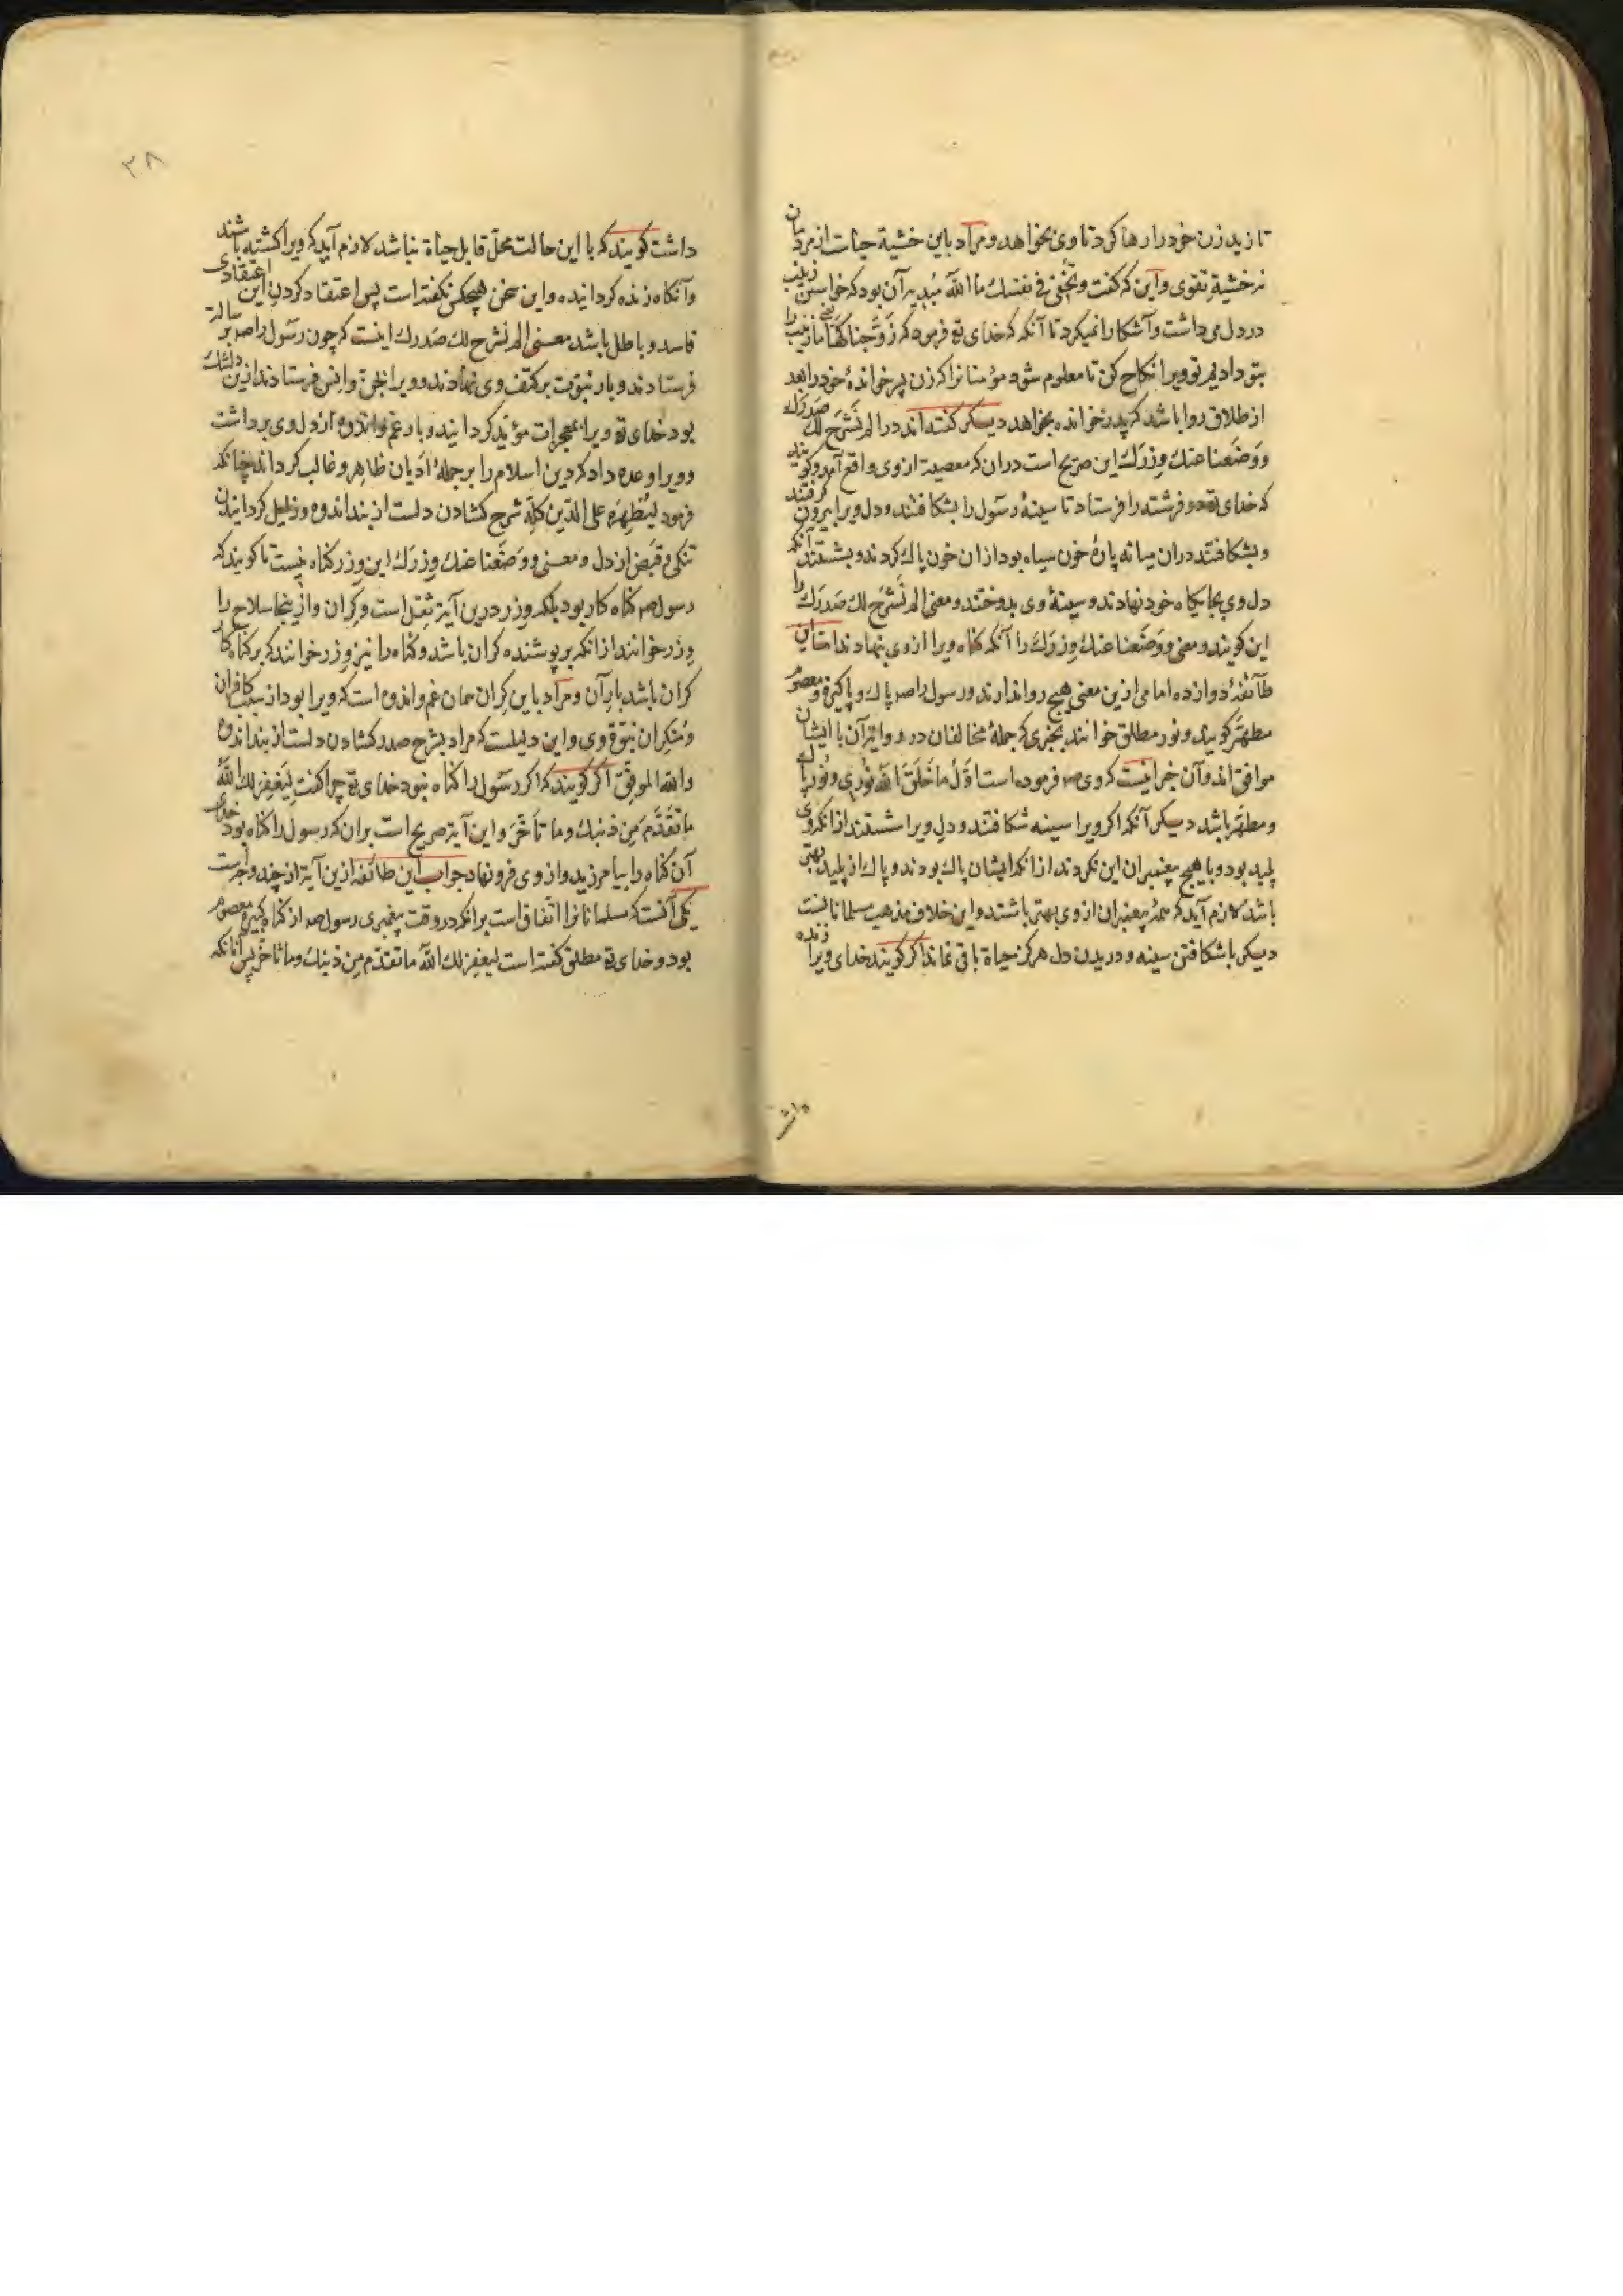 تا زید زن خود را رها کرد تا وی بخواهد و مراد باین خشیة حیات از مردمان
نه خشیة تقوی و این که گفت و تخفی فی نفسك ما الله مبدیه آن بود که خواستن زینب
در دل می داشت و آشکارا نمیکرد تا آنکه که خدای تع فرمود که زوّجناکها ما زینب را
بتو دادیم تو ویرا نکاح کن تا معلوم شود مؤمنانرا که زن پسر خواندۀ خود را بعد
از طلاق روا باشد که پدر خوانده بخواهد دیگر گفته‌اند در الم نَشرَح لك صَدرَك
و وَضَعنا عنك وِزرَك این صریح است در آن که معصیة از وی واقع آمد و گویند
که خدای تع دو فرشته را فرستاد تا سینۀ رسول را بشکافتند و دل ویرا بیرون گرفتند
و بشکافتند در آن میانه پارۀ خون سیاه بود از آن خون پاك کردند و بشستند آنکه
دل وی بجایگاه خود نهادند و سینۀ وی بدوختند و معنی الم نَشرَح لك صَدرَك را
این گویند و معنی و وَضَعنا عنك وِزرَك را آنکه گناه ویرا از وی بنهادند اما این
طائفۀ دوازده امامی ازین معنی هیچ روا ندارند و رسول را صم پاك و پاکیزه و معصوم
مطهّر گویند و نور مطلق خوانند بخبری که جملۀ مخالفان در روایة آن با ایشان
موافق‌اند و آن خبر اینست که وی صم فرموده است اوّلُ ما خَلَقَ الله نُوری و نُور پاك
و مطهّر باشد دیگر آنکه اگر ویرا سینه شکافتند و دل ویرا شستند از آنکه وی
پلید بود و با هیچ پیغمبران این نکردند از آنکه ایشان پاك بودند و پاك از پلید بهتر
باشد لازم آید که همۀ پیغمبران از وی بهتر باشند و این خلاف مذهب مسلمانانست
دیگر باشکافتن سینه و دریدن دل هرگز حیاة باقی نماند اگر گویند خدای ویرا زنده
داشت
٣٨
داشت گویند که با این حالت محلّ قابل حیاة نباشد لازم آید که ویرا کشته باشند
و آنگاه زنده گردانیده و این سخن هیچکس نگفته است پس اعتقاد کردن این اعتقادی
فاسد و باطل باشد معنی الم نشرح لك صَدرك اینست که چون رسول را صم بر سالة
فرستادند و بار نبوّت بر کتف وی نهادند و ویرا بجنّ و انس فرستادند ازین دلتنك
بود خدای تع ویرا بمعجزات مؤیّد گردانید و بار غم و اندوه از دل وی برداشت
و ویرا وعده داد که دین اسلام را بر جملۀ ادیان ظاهر و غالب گرداند چنانکه
فرمود لیُظهِرَه علی الدّین کلّه شرح گشادن دلست از بند اندوه و زایل گردانیدن
تنگی و قبض از دل و معنی و وَضَعنا عنك وِزرَك این وزر گناه نیست تا گویند که
رسول صم گناه کار بود بلکه وِزر درین آیة ثِقل است و گران و ازینجا سلاح را
وِزر خوانند از آنکه بر پوشنده گران باشد و گناه را نیز وِزر خوانند که بر گناه کار
گران باشد بار آن و مراد باین گران همان غم و اندوه است که ویرا بود از سبب کافران
و مُنکِران نبوّة وی و این دلیلست که مراد بشرح صدر گشادن دلست از بند اندوه
والله الموفق اگر گویند که اگر رسول را گناه نبود خدای تع چرا گفت لیَغفِرَ لك اللهُ
ما تَقَدَّمَ مِن ذنبك و ما تأخّرَ و این آیة صریح است بر آن که رسول را گناه بود خدای
آن گناه را بیامرزید و از وی فرو نهاد جواب این طائفه ازین آیة از چند وجه است
یکی آنست که مسلمانانرا اتّفاق است بر آنکه در وقت پیغمبری رسول صم از گناه کبیره معصوم
بود و خدای تع مطلق گفته است لیغفِرَ لك اللهُ ما تقدّم مِن ذنبك و ما تأخّر پس آنانکه